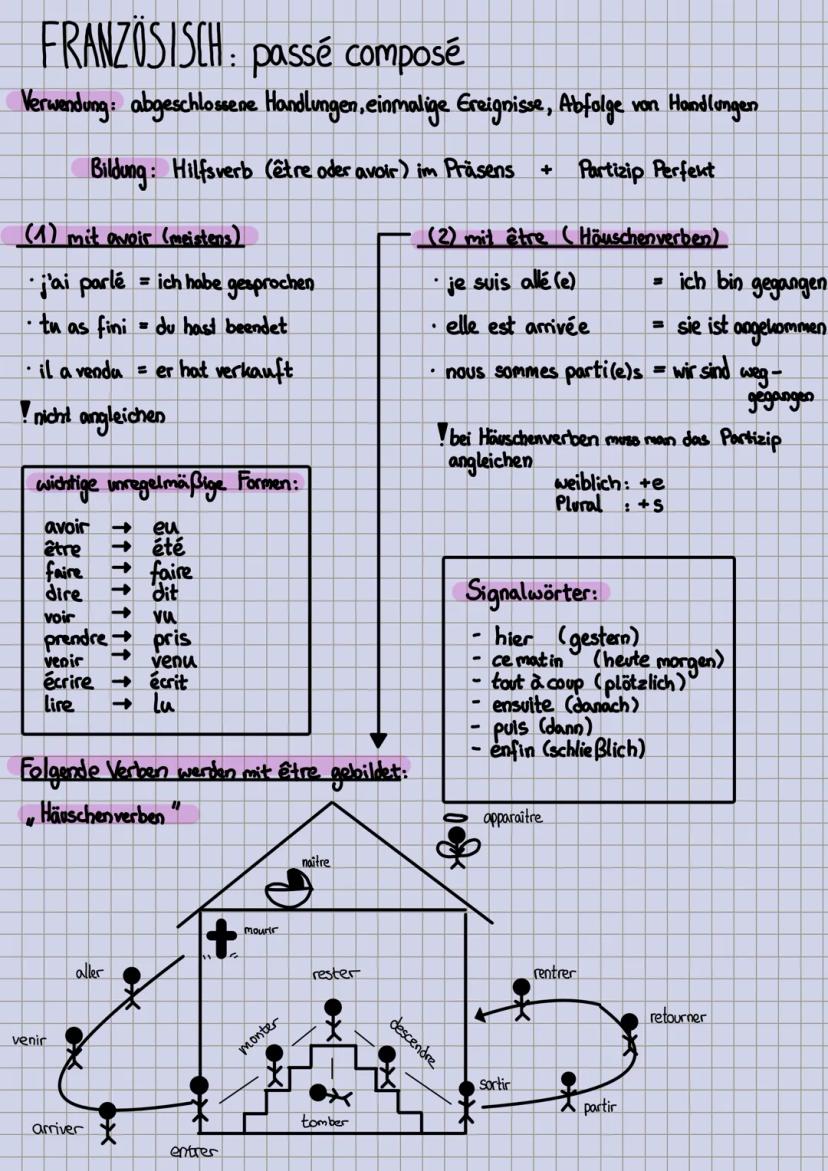 FRANZÖSISCH: passé composé
Verwendung: abgeschlossene Handlungen, einmalige Ereignisse, Abfolge von Handlungen
Bildung: Hilfsverb (être oder avoir) im Präsens + Partizip Perfekt
(1) mit avoir (meistens)
· j'ai parlé = ich habe gesprochen
· tu as fini = du hast beendet
· il a vendu = er hat verkauft
! nicht angleichen
wichtige unregelmäßige Formen:
avoir → eu
être → été
faire → faire
dire → dit
voir → vu
prendre → pris
venir → venu
écrire → écrit
lire → lu
(2) mit être (Häuschenverben)
· je suis allé(e) = ich bin gegangen
· elle est arrivée = sie ist angekommen
· nous sommes parti(e)s = wir sind weg-
gegangen
! bei Häuschenverben muss man das Partizip
angleichen
weiblich: +e
Plural : +s
Signalwörter:
- hier (gestern)
- ce matin (heute morgen)
- tout à coup (plötzlich)
- ensuite (danach)
- puis (dann)
- enfin (schließlich)
Folgende Verben werden mit être gebildet:
„Häuschenverben"
apparaître
naître
mourir
aller
rester
rentrer
venir
monter
descendre
retourner
sortir
arriver
tomber
partir
entrer